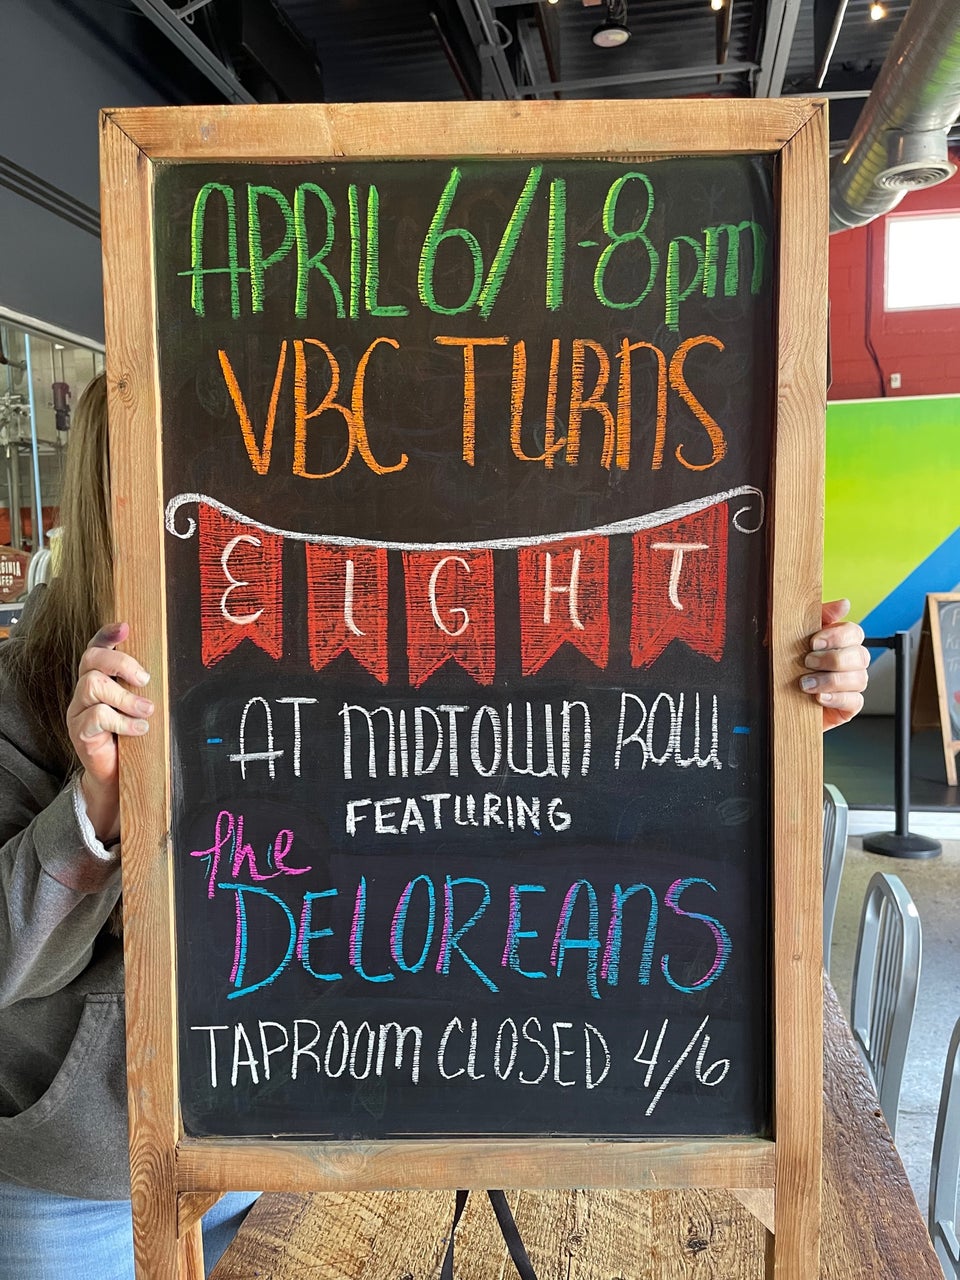 APRIL 6/1-8pm
VBC TURNS
EIGHT
-AT MIDTOWN ROW-
FEATURING
the
DELOREANS
TAPROOM CLOSED 4/6